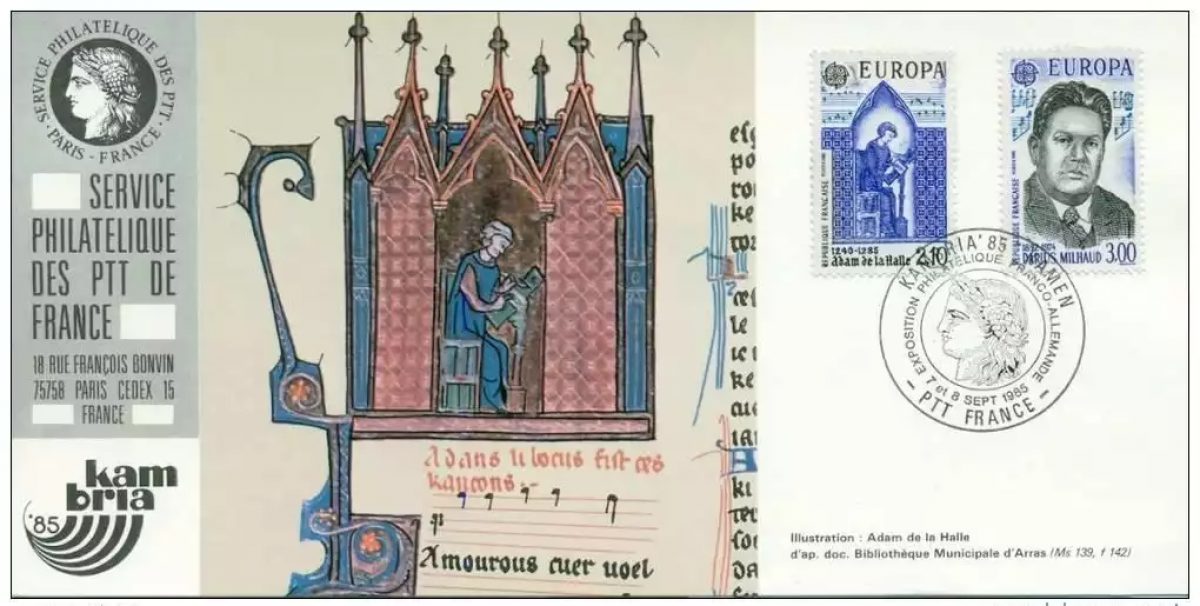 SERVICE PHILATELIQUE DES PTT
· PARIS - FRANCE ·
SERVICE
PHILATELIQUE
DES PTT DE
FRANCE
18 RUE FRANÇOIS BONVIN
75758 PARIS CEDEX 15
FRANCE
kam
bria
'85
Adans li bocus fist ces
kancons :-
Amourous cuer voel
esp
po
ro
ke
le
ke
ki
EUROPA
REPUBLIQUE FRANÇAISE
1240-1285
Adam de la Halle 2,10
EUROPA
REPUBLIQUE FRANÇAISE
1892-1974
DARIUS MILHAUD 3,00
KAMBRIA'85
EXPOSITION PHILATELIQUE FRANCO-ALLEMANDE
7 et 8 SEPT 1985
- PTT FRANCE -
Illustration : Adam de la Halle
d'ap. doc. Bibliothèque Municipale d'Arras (Ms 139, f 142)